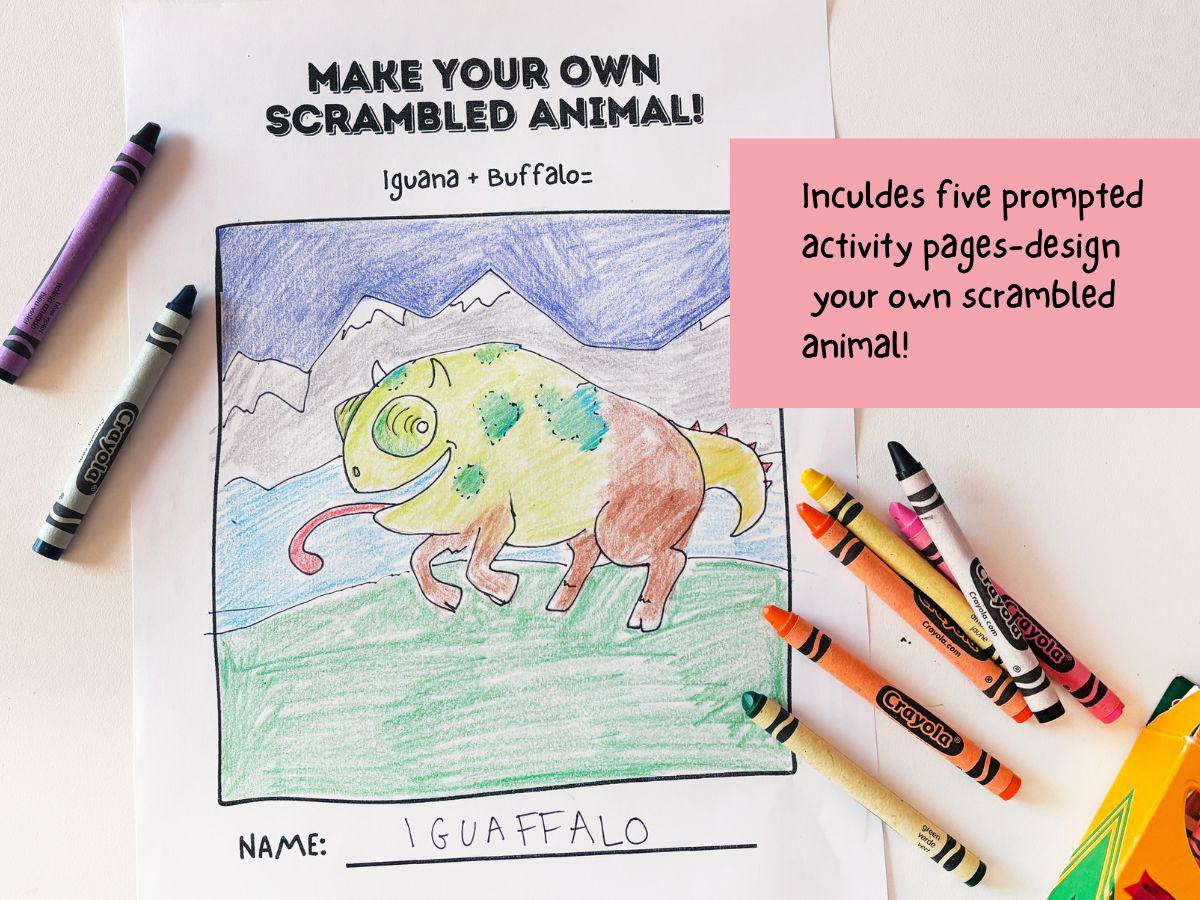 MAKE YOUR OWN
SCRAMBLED ANIMAL!
Iguana + Buffalo=
Inculdes five prompted
activity pages-design
your own scrambled
animal!
NAME: IGUAFFALO
Crayola®
Crayola®
Crayola.com
jaune
Crayola
Crayola.com
Crayola®
Crayola®
green
verde
vert